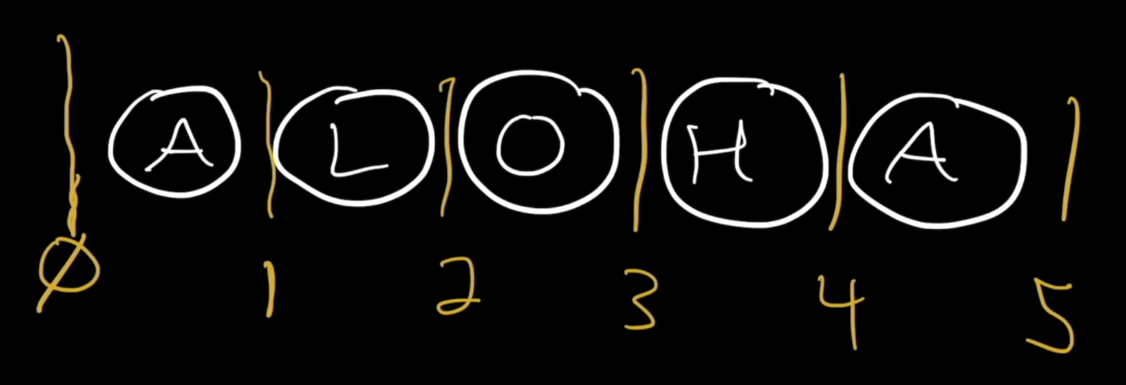 A L O H A
0 1 2 3 4 5